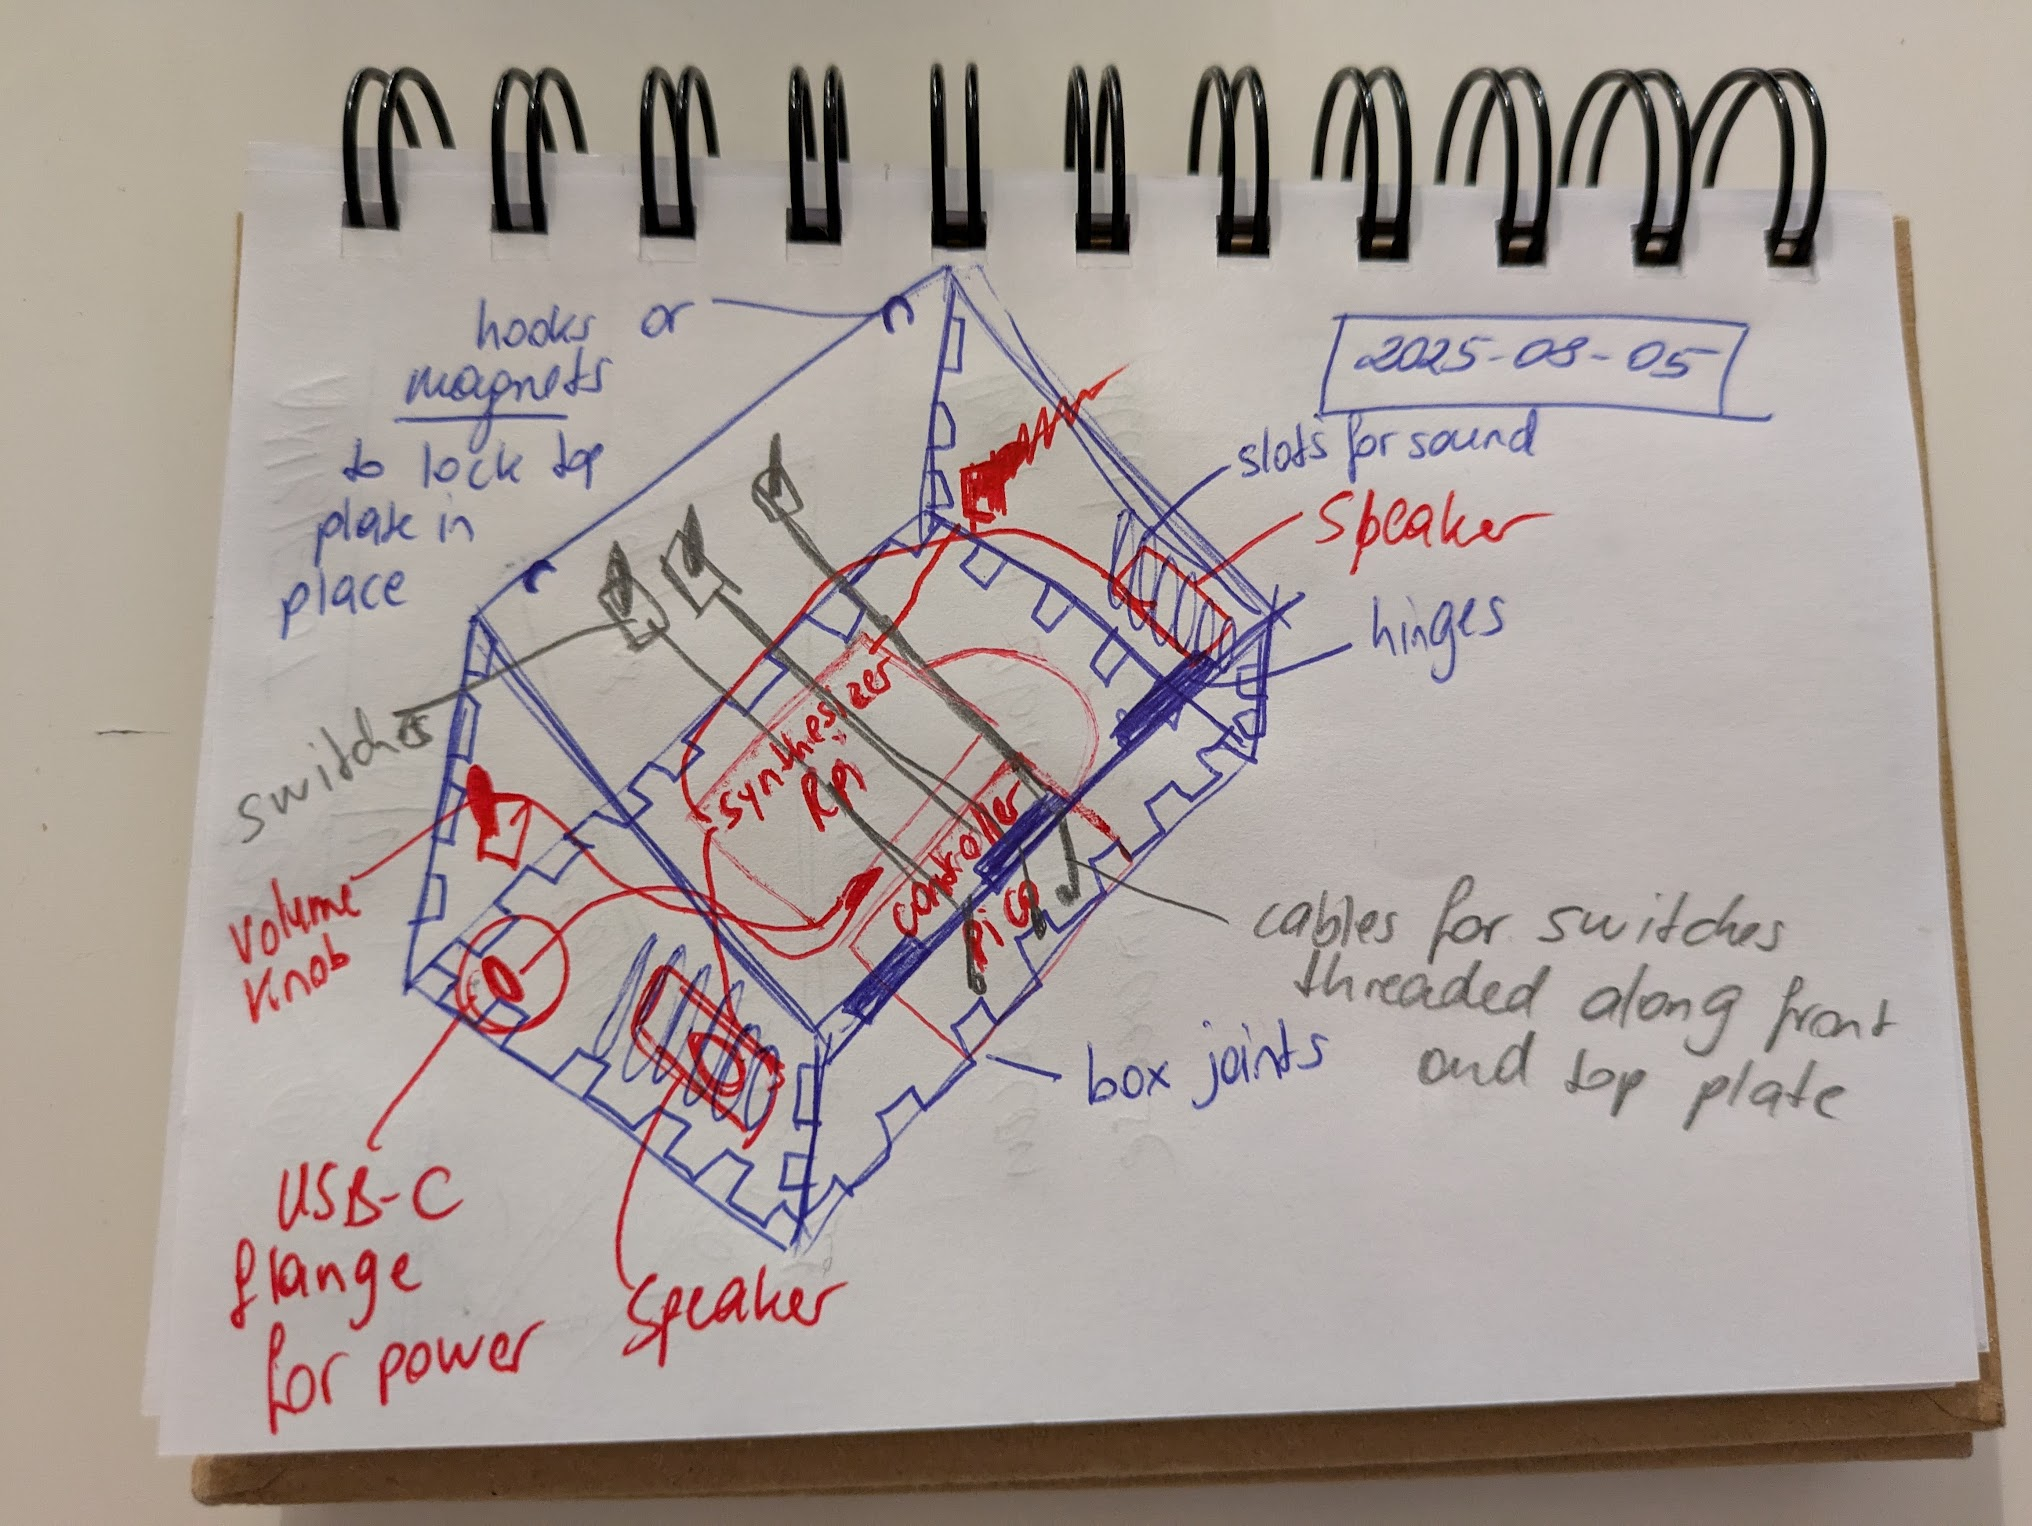 hooks or
magnets
to lock top
plate in
place
2025-08-05
slots for sound
Speaker
hinges
switches
synthesizer
Rpi
controller
pico
volume
knob
cables for switches
threaded along front
and top plate
box joints
USB-C
flange
for power
Speaker